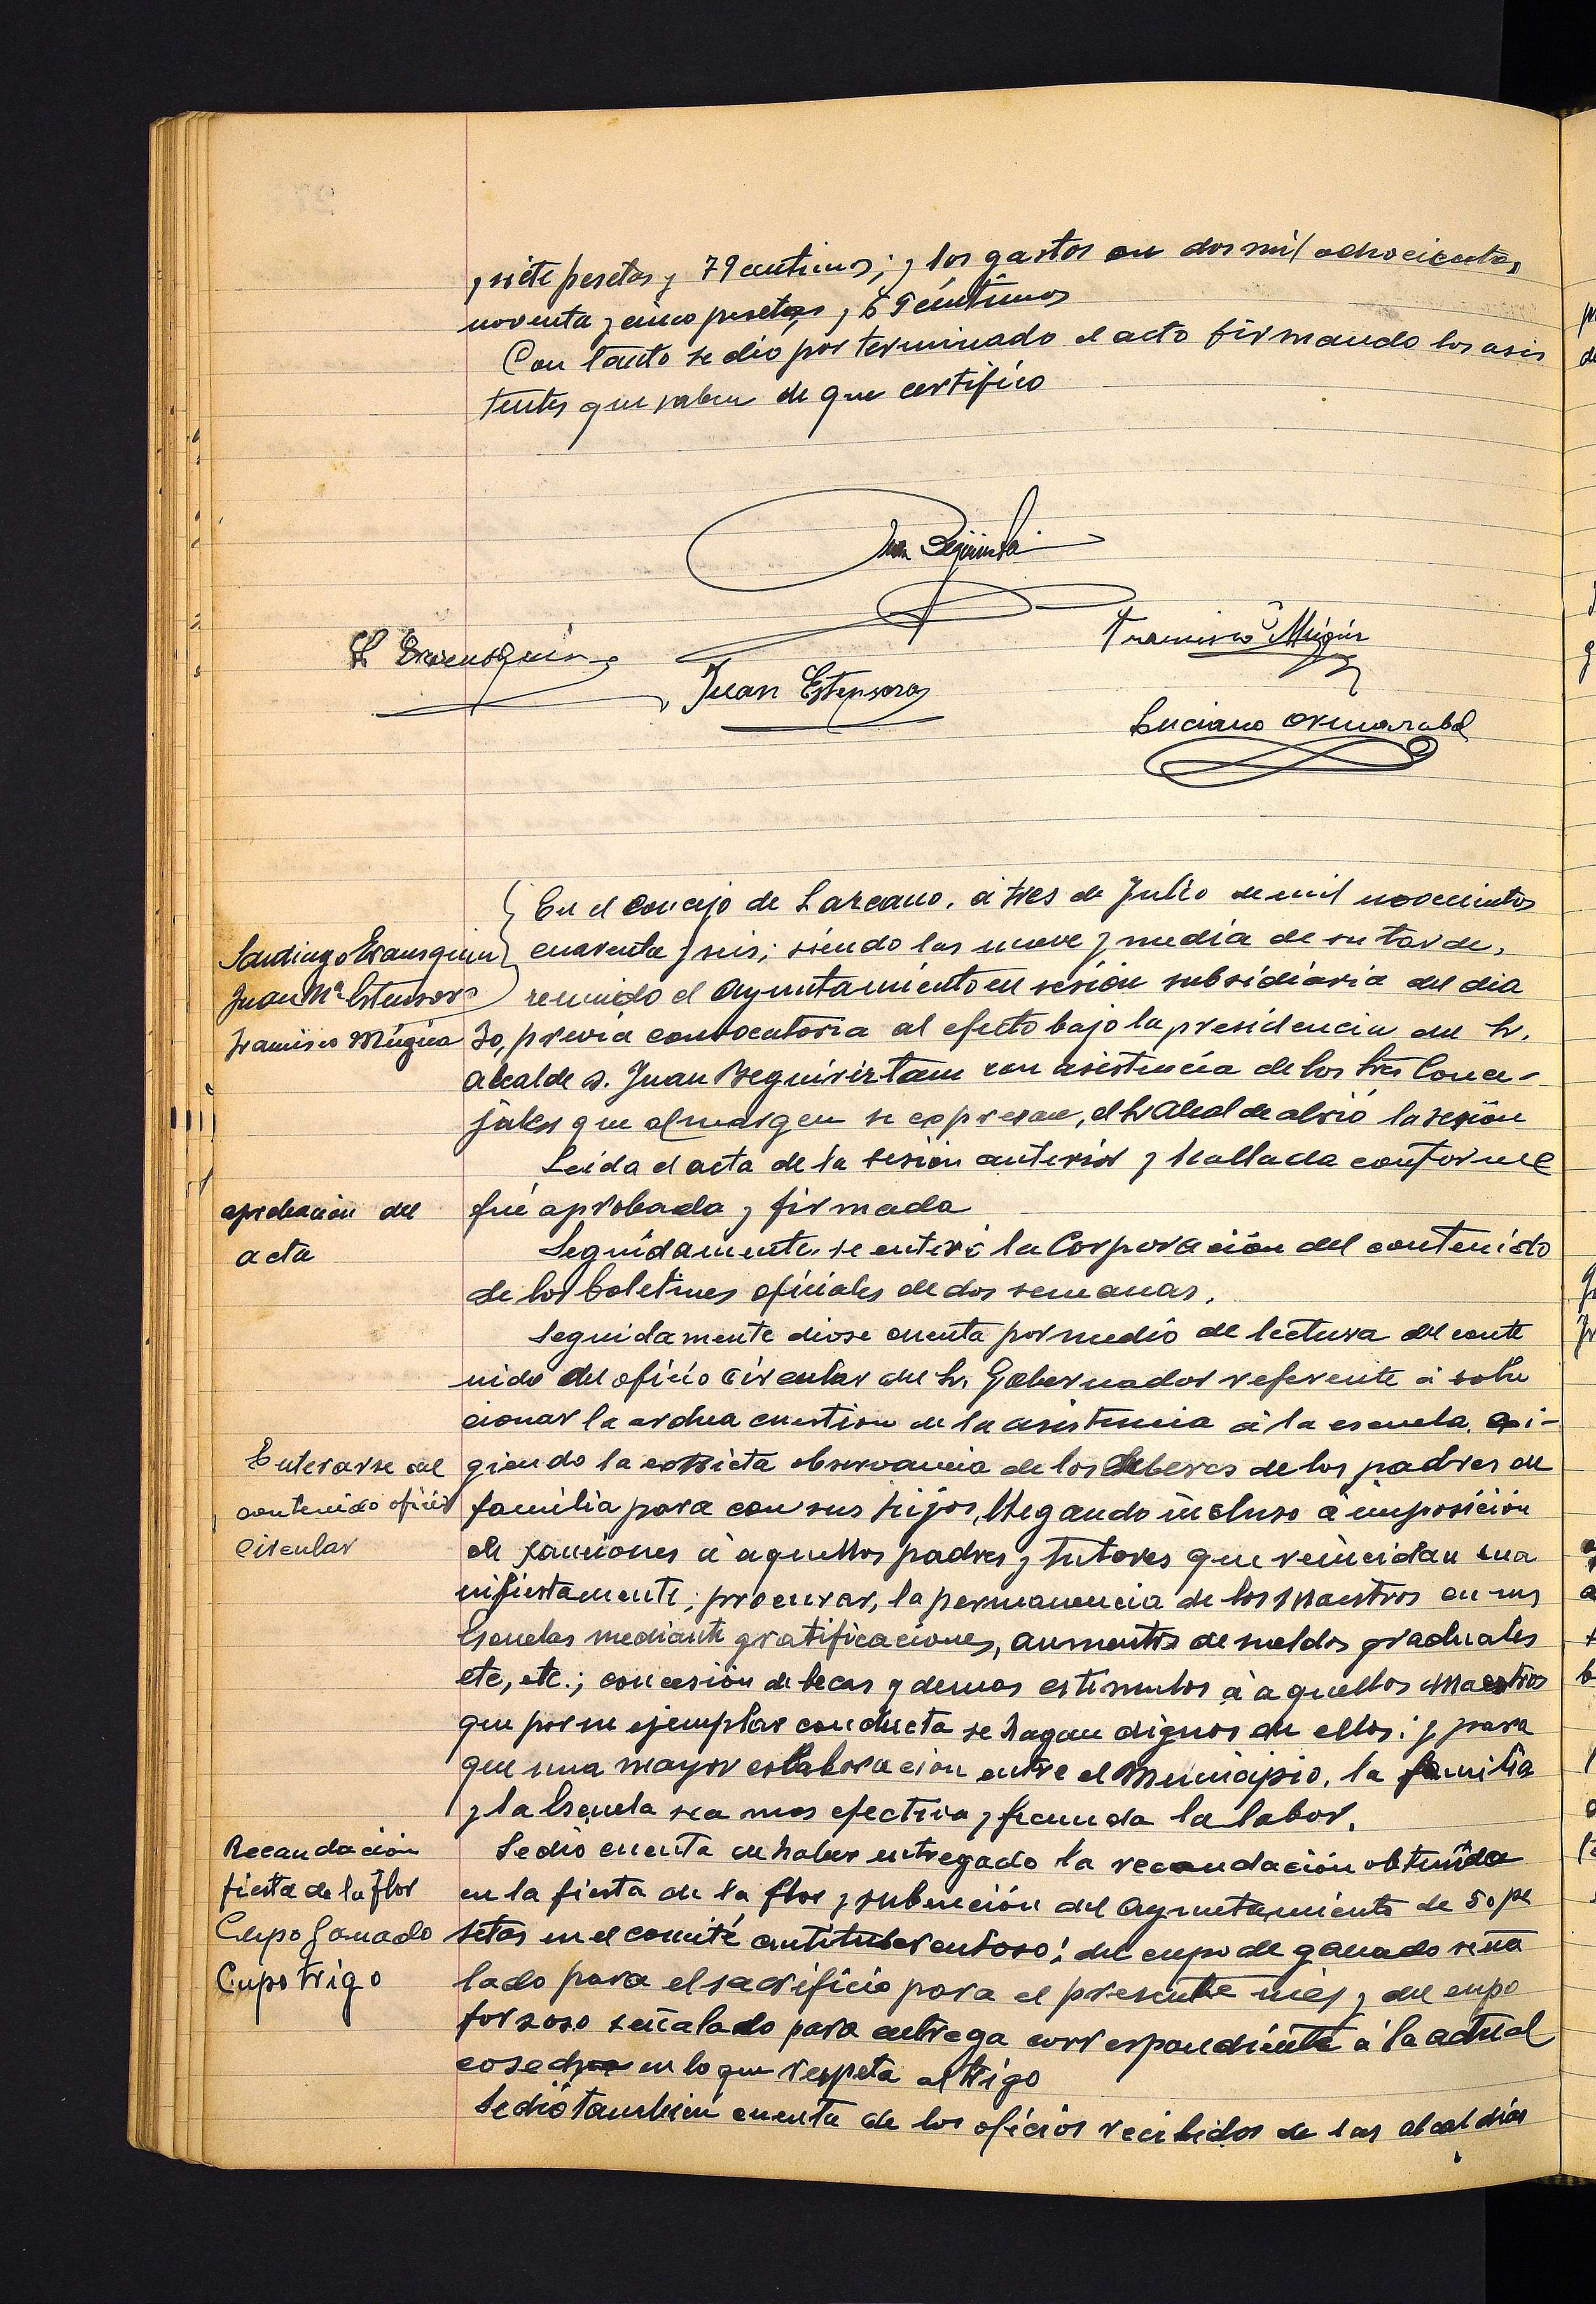 y siete pesetas y 79 centimos; y los gastos en dos mil ochocientas
noventa y cinco pesetas y 69 centimos
Con tanto se dio por terminado el acto firmando los asis
tentes que saben de que certifico
Juan
Francisco Múgica
Juan Estensoro
Luciano
En el concejo de Lazcano, á tres de Julio de mil novecientos
Santiago Erausquin
cuarenta y seis; siendo las nueve y media de su tarde,
Juan Mª Estensoro
reunido el Ayuntamiento en sesión subsidiaria del dia
Francisco Múgica
30, previa convocatoria al efecto bajo la presidencia del Sr.
Alcalde D. Juan Beguiristain con asistencia de los tres Conce-
jales que al margen se expresan, el Sr Alcalde abrió la sesión
Leida el acta de la sesión anterior y hallada conforme
aprobación del
fué aprobada y firmada
acta
Seguidamente se enteró la Corporación del contenido
de los boletines oficiales de dos semanas.
Seguidamente diose cuenta por medio de lectura del conte
nido del oficio circular del Sr. Gobernador referente á solu
cionar la ardua cuestion de la asistencia á la escuela, exi-
Enterarse del
giendo la estricta observancia de los deberes de los padres de
contenido oficio
familia para con sus hijos, llegando incluso á imposición
Circular
de sanciones á aquellos padres y tutores que reincidan ma
nifiestamente; procurar, la permanencia de los Maestros en sus
Escuelas mediante gratificaciones, aumentos de sueldos graduales
etc, etc.; concesión de becas y demas estimulos á aquellos Maestros
que por su ejemplar conducta se hagan dignos de ellos; y para
que una mayor colaboración entre el Municipio, la familia
y la Escuela sea mas efectiva y fecunda la labor.
Recaudación
Se dió cuenta de haber entregado la recaudación obtenida
fiesta de la flor
en la fiesta de la flor y subención del Ayuntamiento de 50 pe
Cupo ganado
setas en el comité antituberculoso; del cupo de ganado seña
Cupo trigo
lado para el sacrificio para el presente mes y del cupo
forzoso señalado para entrega correspondiente á la actual
cosecha en lo que respeta al trigo
Se dió tambien cuenta de los oficios recibidos de las alcaldias